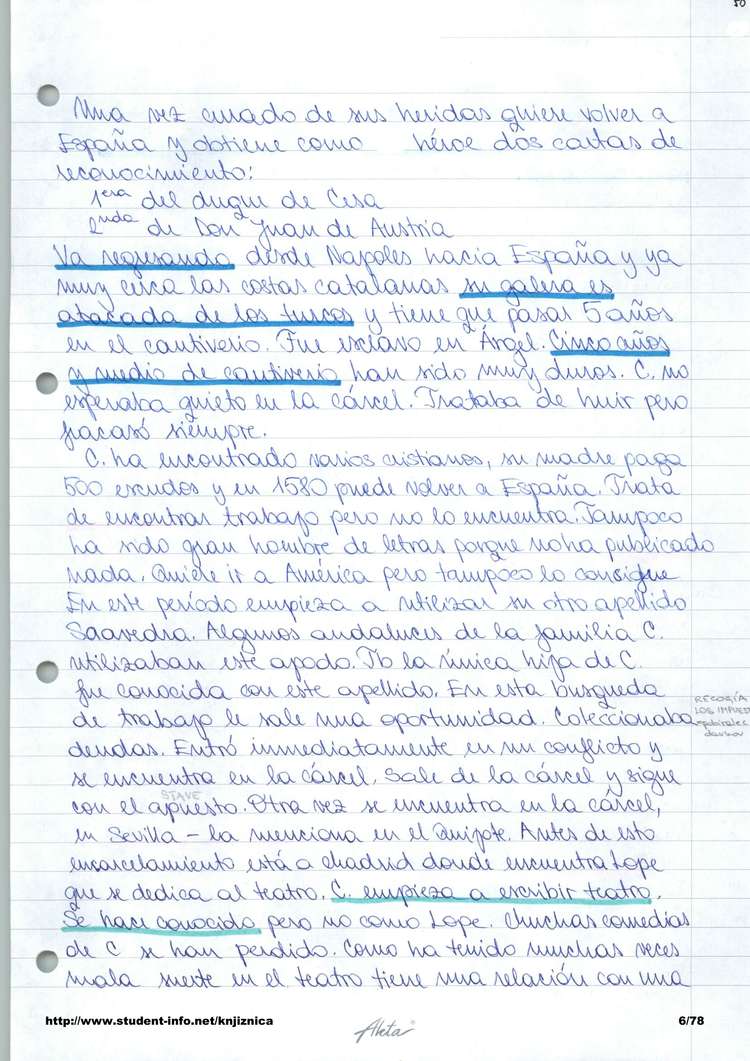 50
Una vez curado de sus heridas quiere volver a
España y obtiene como héroe dos cartas de
reconocimiento:
1era del duque de Cesa
2nda de Don Juan de Austria
Va regresando desde Napoles hacia España y ya
muy cerca las costas catalanas su galera es
atacada de los turcos y tiene que pasar 5 años
en el cautiverio. Fue esclavo en Árgel. Cinco años
y medio de cautiverio han sido muy duros. C. no
esperaba quieto en la cárcel. Trataba de huir pero
fracasó siempre.
C. ha encontrado varios cristianos, su madre paga
500 escudos y en 1580 puede volver a España. Trata
de encontrar trabajo pero no lo encuentra. Tampoco
ha sido gran hombre de letras porque no ha publicado
nada. Quiere ir a América pero tampoco lo consigue
En este período empieza a utilizar su otro apellido
Saavedra. Algunos andaluces de la familia C.
utilizaban este apodo. Tb la única hija de C.
fue conocida con este apellido. En esta busqueda
de trabajo le sale una oportunidad. Coleccionaba
RECOGÍA
LOS IMPUES
deudas. Entró inmediatamente en un conflicto y
se encuentra en la cárcel. Sale de la cárcel y sigue
STAVE
con el apuesto. Otra vez se encuentra en la cárcel,
en Sevilla – la menciona en el Quijote. Antes de esto
encarcelamiento está a Madrid donde encuentra Lope
que se dedica al teatro. C. empieza a escribir teatro.
Se hace conocido pero no como Lope. Muchas comedias
de C se han perdido. Como ha tenido muchas veces
mala suerte en el teatro tiene una relación con una
http://www.student-info.net/knjiznica
Akta
6/78